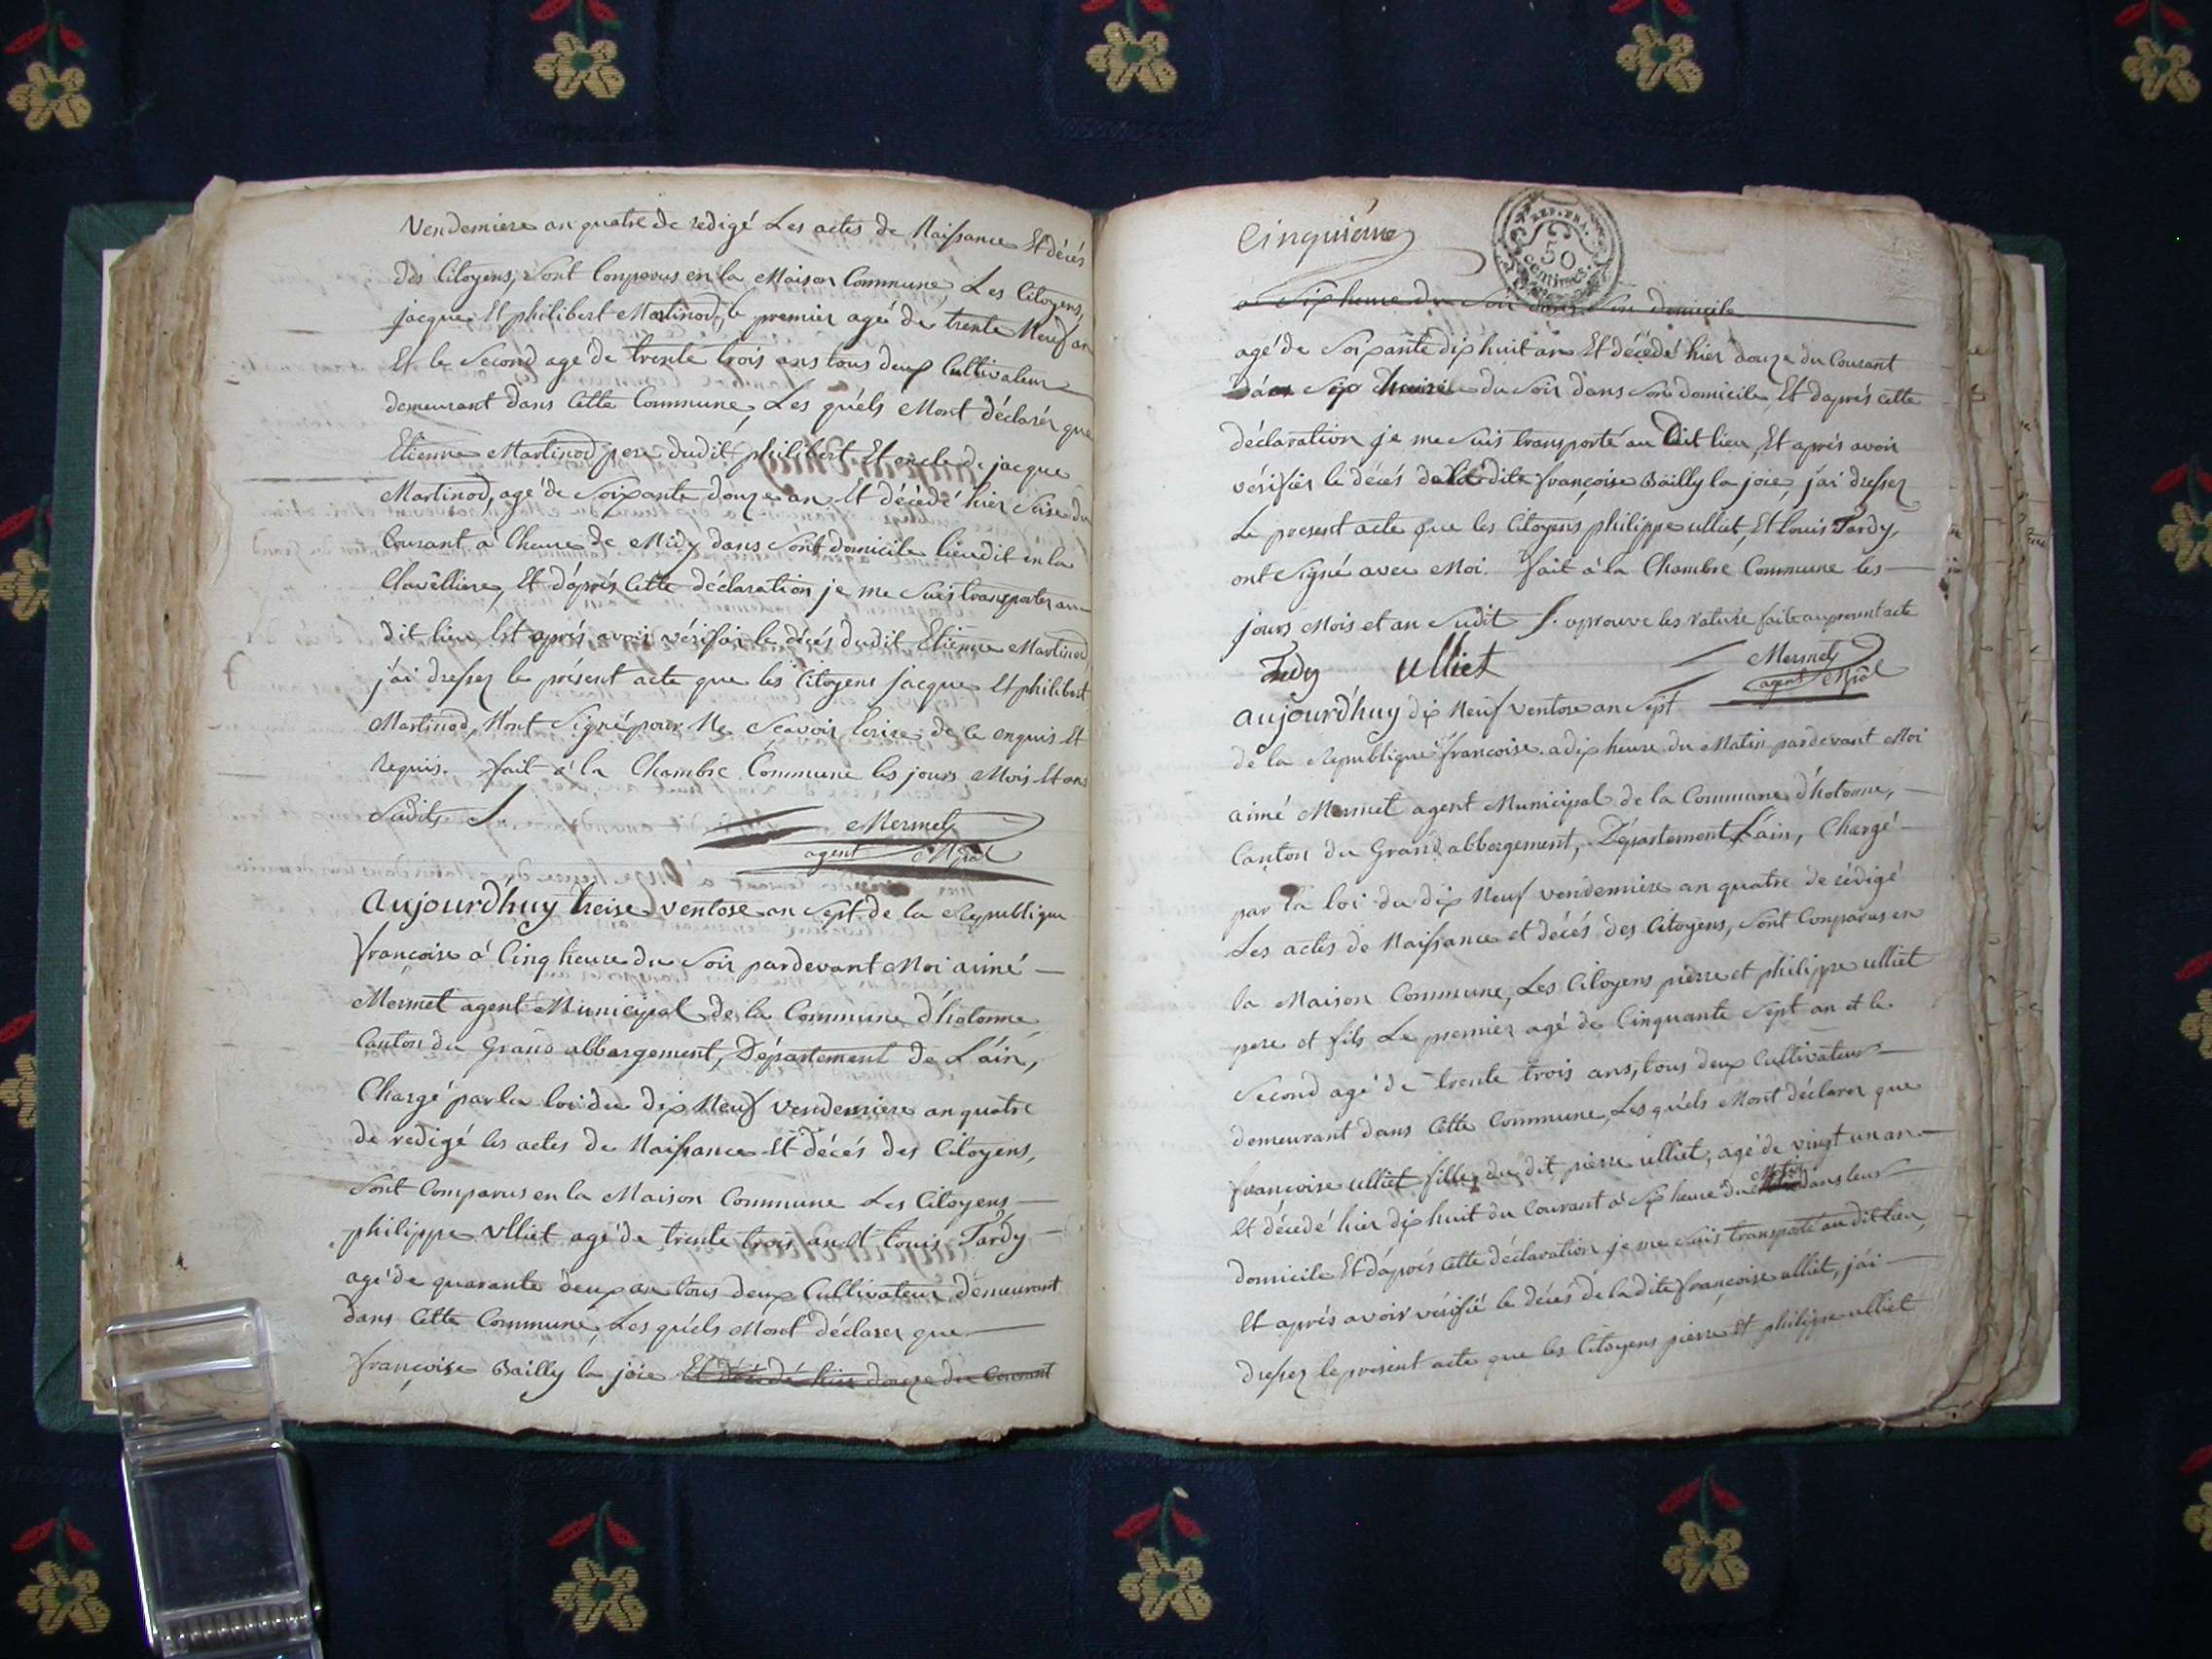 Vendemiere an quatre de redigé Les actes de Naissance Et décés
des Citoyens, Sont Conparus en la Maison Commune Les Citoyens,
jacque Et philibert Martinod, le premier agé de trente Neuf an
Et le Second agé de trente trois ans tous deux Cultivateur
demeurant dans Cette Commune, Les quéls Mont déclarér que
Etienne Martinod pere dudit philibert Et oncle de jacque
Martinod, agé de Soixante douze an Et décédé hier Seise du
Courant a Lheure de Midy dans Sont domicile lieudit en la
Clavêlliere, Et d'aprés Cette déclaration je me Suis transporter au
dit lieu Et aprés avoir vérifair le décés dudit Etienne Martinod
j'ai dresser le présent acte que les Citoyens jacque Et philibert
Martinod, Nont Signé pour Ne Scavoir Ecrire de ce enquis Et
Requis. fait a la Chambre Commune les jours Mois Et an
Sudits
Mermet
agent Mpal
Aujourd'huy treise ventose an Sept de la Republique
françoise a Cinq heure du Soir pardevant Moi aimé
Mermet agent Municipal de la Commune d'hotonne
Canton du Grand abbergement, Département de L'ain,
Chargé par la loi du dix Neuf vendemiere an quatre
de redigé les actes de Naissance Et décés des Citoyens,
Sont Comparus en la Maison Commune Les Citoyens
philippe Ulliet agé de trente trois an Et Louis Tardy
agé de quarante deux an tous deux Cultivateur demeurant
dans Cette Commune, Les quéls Mont déclarer que
françoise Bailly la joie Et décédé hier douze du Courant
Cinquiéme
REP. FRA.
50
centimes.
a Six heure du Soir dans Son domicile
agé de Soixante dix huit an Et décédé hier douze du Courant
Six heure du Soir dans Son domicile, Et daprés cette
déclaration je me Suis transporté au Dit lieu, Et aprés avoir
vérifier le décés de la dite françoise Bailly la joie, j'ai dresser
Le present acte que les Citoyens philippe ulliet, Et louis Tardy,
ont Signé avec Moi. fait a la Chambre Commune les
jours Mois et an Sudit J. aprouve les rature faite au present acte
Tardy Ulliet Mermet
agent Mpal
Aujourd'huy dix Neuf ventose an Sept
de la Republique françoise a dix heure du Matin pardevant Moi
aimé Mermet agent Municipal de la Commune d'hotonne,
Canton du Grand abbergement, Département L'ain, Chargé
par la loi du dix Neuf vendemiere an quatre de rédigé
Les actes de Naissance et décés des Citoyens, Sont Comparus en
la Maison Commune, Les Citoyens pierre et philippe ulliet
pere et fils Le premier agé de Cinquante Sept an et le
Second agé de trente trois ans, tous deux Cultivateur
demeurant dans Cette Commune, Les quéls Mont déclarer que
françoise ulliet fille du dit pierre ulliet, agé de vingt un an
Et décedé hier dix huit du Courant a Six heure du Matin dans leur
domicile Et d'aprés Cette déclaration je me Suis transporté au dit lieu,
Et aprés avoir vérifié le décés de la dite françoise ulliet, j'ai
dresser le present acte que les Citoyens pierre Et philippe ulliet